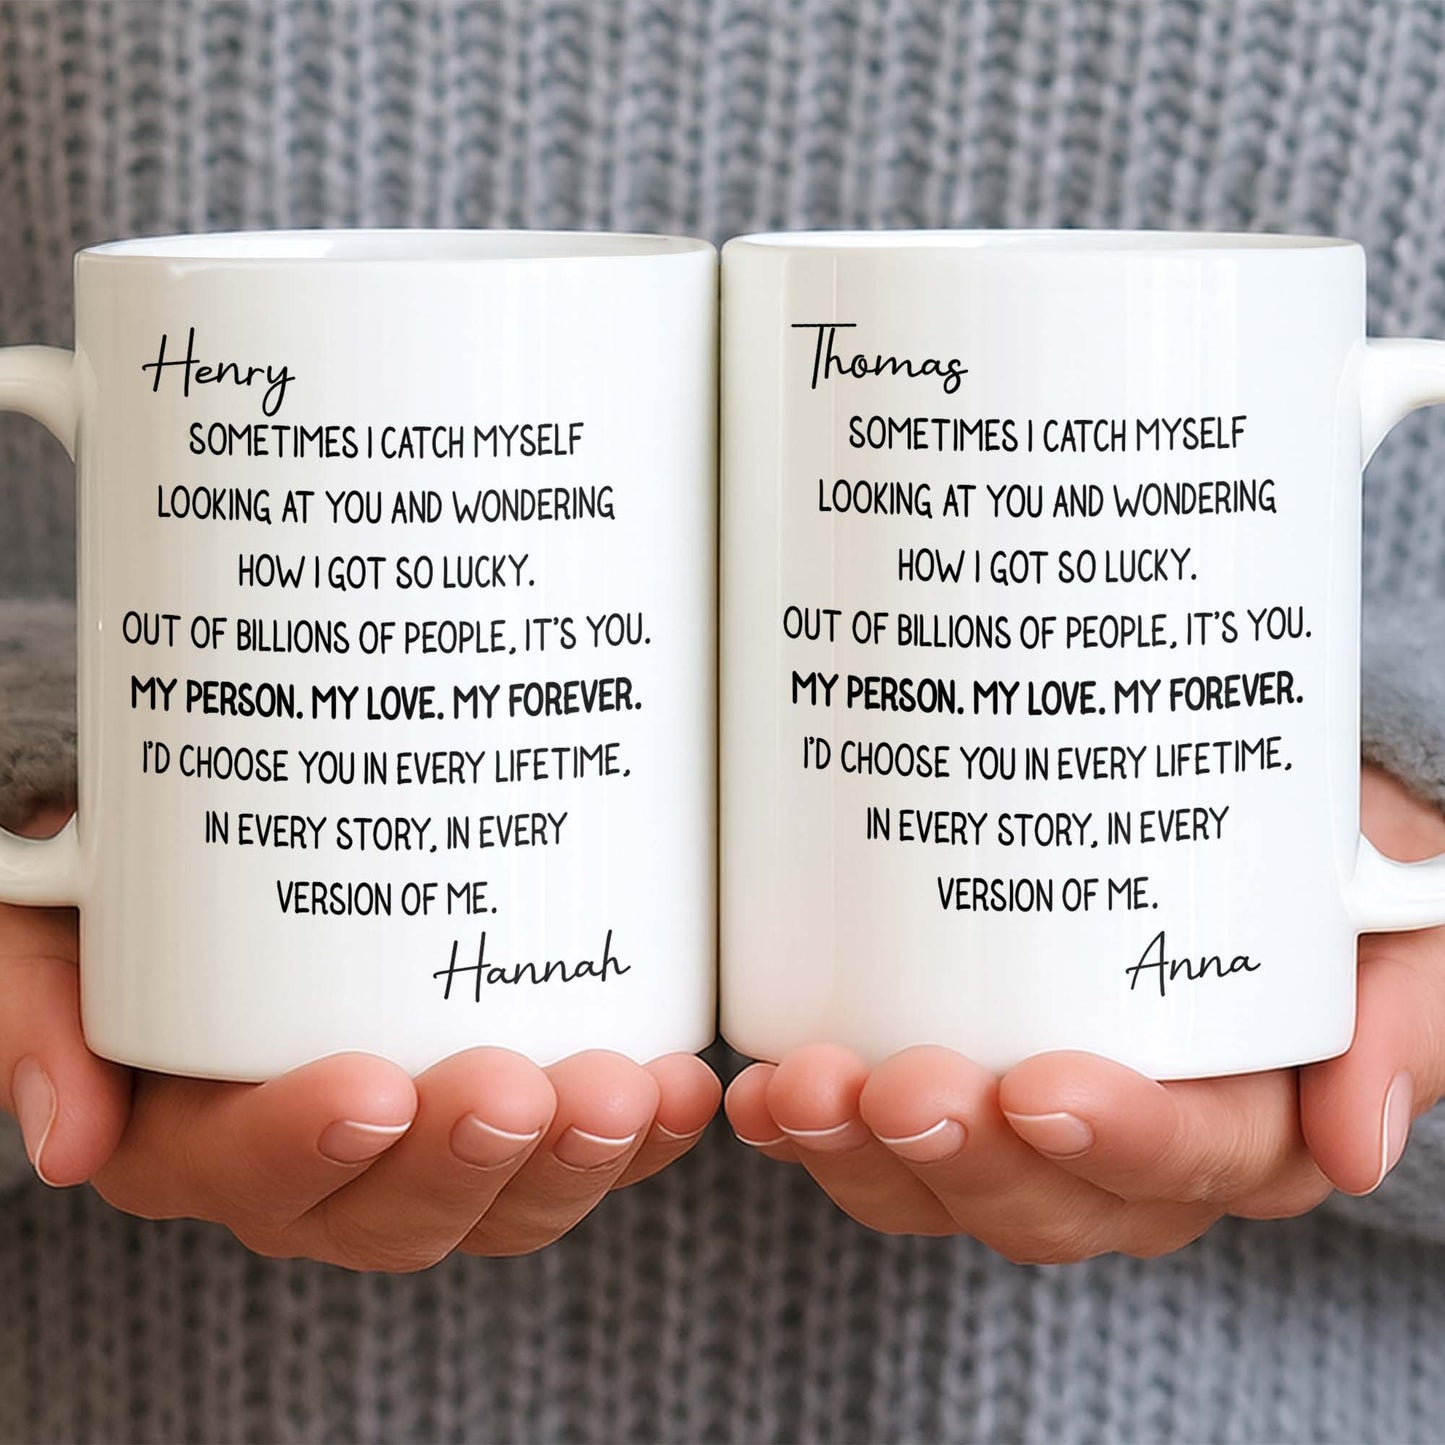 Henry
SOMETIMES I CATCH MYSELF
LOOKING AT YOU AND WONDERING
HOW I GOT SO LUCKY.
OUT OF BILLIONS OF PEOPLE, IT'S YOU.
MY PERSON. MY LOVE. MY FOREVER.
I'D CHOOSE YOU IN EVERY LIFETIME,
IN EVERY STORY, IN EVERY
VERSION OF ME.
Hannah
Thomas
SOMETIMES I CATCH MYSELF
LOOKING AT YOU AND WONDERING
HOW I GOT SO LUCKY.
OUT OF BILLIONS OF PEOPLE, IT'S YOU.
MY PERSON. MY LOVE. MY FOREVER.
I'D CHOOSE YOU IN EVERY LIFETIME,
IN EVERY STORY, IN EVERY
VERSION OF ME.
Anna